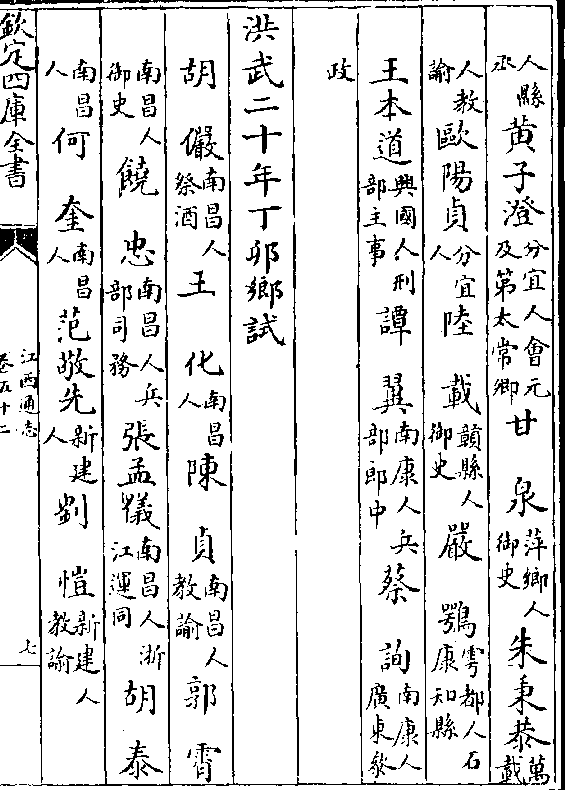 人縣丞黄子澄分宜人會元及第太常卿甘泉萍鄉人御史朱秉恭萬載
人教諭歐陽貞分宜人陸載贛縣人御史嚴鶚雩都人石康知縣
王本道興國人刑部主事譚翼南康人兵部郎中蔡詢南康人廣東叅
政
洪武二十年丁卯鄉試
胡儼南昌人祭酒王化南昌人陳貞南昌人教諭郭霄
南昌人御史饒忠南昌人兵部司務張孟儀南昌人浙江運同胡泰
南昌人何奎南昌人范敬先新建人劉愷新建人教諭
欽定四庫全書
江西通志
卷五十二
七